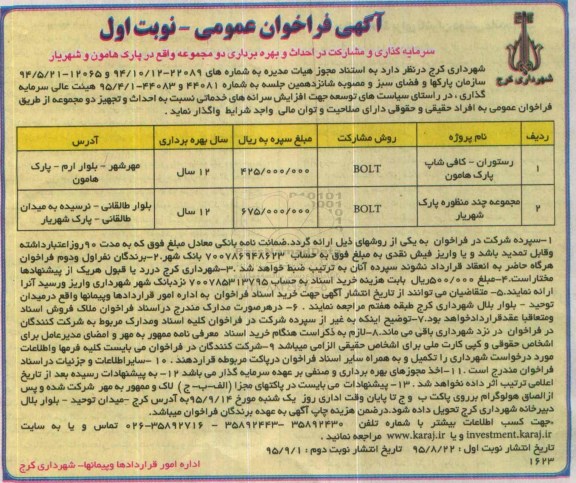 آگهی فراخوان عمومی - نوبت اول
سرمایه گذاری و مشارکت در احداث و بهره برداری دو مجموعه واقع در پارک هامون و شهریار
شهرداری کرج
شهرداری کرج درنظر دارد به استناد مجوز هیات مدیره به شماره های ۲۲۰۸۹-۹۴/۱۰/۱۲ و ۱۲۰۶۵-۹۴/۵/۲۱
سازمان پارکها و فضای سبز و مصوبه شانزدهمین جلسه به شماره ۴۴۰۸۱ و ۴۴۰۸۳-۹۵/۴/۱ هیئت عالی سرمایه
گذاری، در راستای سیاست های توسعه جهت افزایش سرانه های خدماتی نسبت به احداث و تجهیز دو مجموعه از طریق
فراخوان عمومی به افراد حقیقی و حقوقی دارای صلاحیت و توان مالی واجد شرایط واگذار نماید.
ردیف نام پروژه روش مشارکت مبلغ سپره به ریال سال بهره برداری آدرس
۱ رستوران - کافی شاپ پارک هامون BOLT ۴۲۵/۰۰۰/۰۰۰ ۱۲ سال مهرشهر - بلوار ارم - پارک هامون
۲ مجموعه چند منظوره پارک شهریار BOLT ۶۷۵/۰۰۰/۰۰۰ ۱۲ سال بلوار طالقانی - نرسیده به میدان طالقانی - پارک شهریار
۱-سپرده شرکت در فراخوان به یکی از روشهای ذیل ارائه گردد.ضمانت نامه بانکی معادل مبلغ فوق که به مدت ۹۰روزاعتبارداشته
وقابل تمدید باشد و یا واریز فیش نقدی به مبلغ فوق به حساب ۷۰۰۷۸۶۹۴۸۶۲۳ بانک شهر.۲-برندگان نفراول ودوم فراخوان
هرگاه حاضر به انعقاد قرارداد نشوند سپرده آنان به ترتیب ضبط خواهد شد .۳-شهرداری کرج دررد یا قبول هریک از پیشنهادها
مختاراست.۴-مبلغ ۵۰۰/۰۰۰ریال بابت هزینه خرید اسناد به حساب ۷۰۰۷۸۵۳۱۳۷۹۵ نزدبانک شهر شهرداری واریز ورسید آنرا
ارائه نمایند.۵- متقاضیان می توانند از تاریخ انتشار آگهی جهت خرید اسناد فراخوان به اداره امور قراردادها وپیمانها واقع درمیدان
توحید - بلوار بلال شهرداری کرج طبقه هفتم مراجعه نمایند . ۶- درهرصورت مدارک مندرج دراسناد فراخوان ملاک فروش اسناد
ومتعاقبا عقدقراردادخواهد بود.۷-توضیح اینکه به غیر از سپرده شرکت در فراخوان کلیه اسناد ومدارک مربوط به شرکت کنندگان
در فراخوان در نزد شهرداری باقی می ماند.۸-لازم به ذکراست هنگام خرید اسناد معرفی نامه ممهور به مهر و امضای مدیرعامل برای
اشخاص حقوقی و کپی کارت ملی برای اشخاص حقیقی الزامی میباشد ۹-شرکت کنندگان در فراخوان می بایست کلیه فرمها واطلاعات
مورد درخواست شهرداری را تکمیل و به همراه سایر اسناد فراخوان درپاکت مربوطه قراردهند . ۱۰-سایراطلاعات و جزئیات دراسناد
فراخوان مندرج است .۱۱-اخذ مجوزهای بهره برداری و صنفی بر عهده سرمایه گذار می باشد ۱۲- به پیشنهادات رسیده بعد از تاریخ
اعلامی ترتیب اثر داده نخواهد شد .۱۳- پیشنهادات می بایست در پاکتهای مجزا (الف-ب-ج ) لاک و ممهور به مهر شرکت شده و پس
ازالصاق هولوگرام برروی پاکت ب و ج تا پایان وقت اداری روز یک شنبه مورخ ۹۵/۹/۱۴به آدرس کرج -میدان توحید - بلوار بلال
دبیرخانه شهرداری کرج تحویل داده شود.درضمن هزینه چاپ آگهی به عهده برندگان فراخوان میباشد.
،جهت کسب اطلاعات بیشتر با شماره تلفن ۳۵۸۹۲۴۳۰ - ۳۵۸۹۲۴۴۳ - ۳۵۸۹۲۷۱۶-۰۲۶ تماس و یا به سایت
investment.karaj.ir و یا www.karaj.ir مراجعه نمایید .
تاریخ انتشار نوبت اول : ۹۵/۸/۲۲ تاریخ انتشار نوبت دوم : ۹۵/۹/۱
۱۶۲۳
اداره امور قراردادها وپیمانها- شهرداری کرج